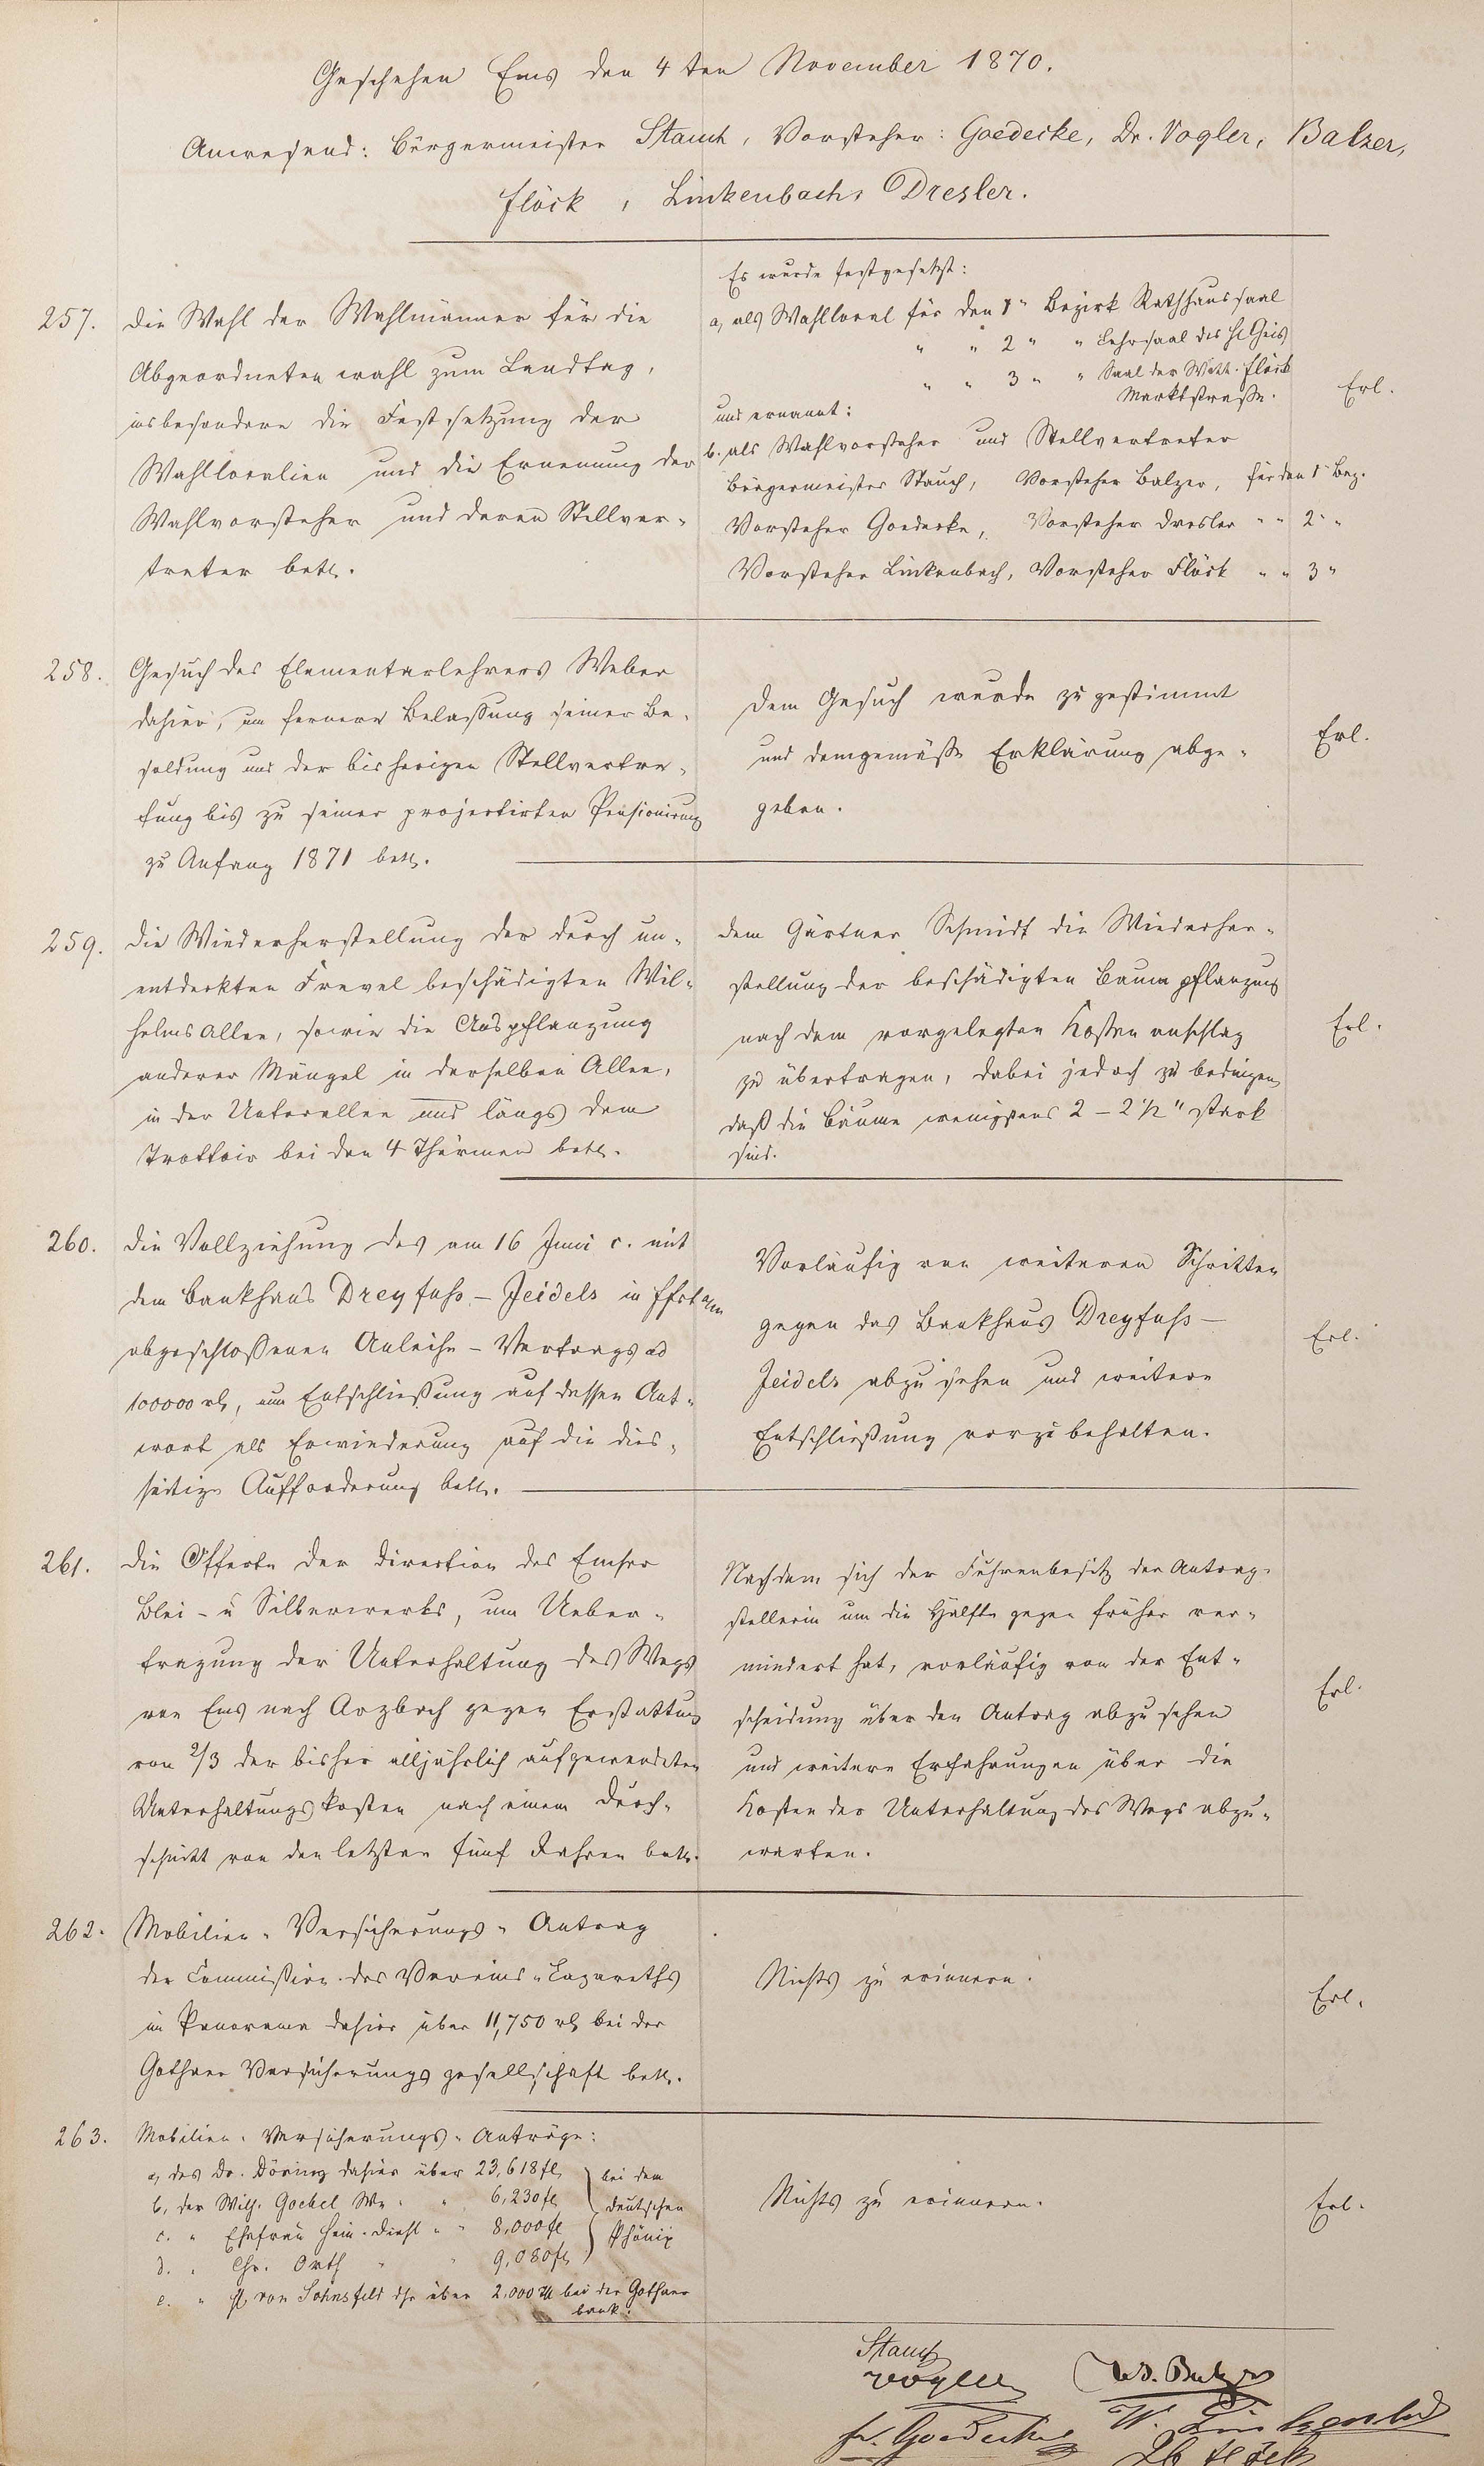 Geschehen Ems den 4ten November 1870.
Anwesend: Bürgermeister Stauch, Vorsteher: Goedecke, Dr. Vogler, Balzer,
Flöck, Linkenbach, Dresler.
257.
Die Wahl der Wahlmänner für die
Abgeordnetenwahl zum Landtag,
insbesondere die Festsetzung der
Wahllocalien und die Ernennung der
Wahlvorsteher und deren Stellver-
treter betr.
Es wurde festgesetzt:
a, als Wahllocal für den 1" Bezirk Rathhaussaal
" " 2 " " Lehrsaal des H Geis
" " 3 " " Saal der Wtt. Flöck
Marktstraße.
und ernannt:
b. als Wahlvorsteher und Stellvertreter
Bürgermeister Stauch, Vorsteher Balzer, für den 1" Bez.
Vorsteher Goedecke, Vorsteher Dresler " " 2 " "
Vorsteher Linkenbach, Vorsteher Flöck " " 3 "
Erl.
258.
Gesuch des Elementarlehrers Weber
dahier, um fernere Belaßung seiner Be-
soldung und der bisherigen Stellvertre-
tung bis zu seiner projectirten Pensionirung
zu Anfang 1871 betr.
Dem Gesuch wurde zugestimmt
und demgemäße Erklärung abge-
geben.
Erl.
259.
Die Wiederherstellung der durch un-
entdeckten Frevel beschädigten Wil-
helmsallee, sowie die Auspflanzung
anderer Mängel in derselben Allee,
in der Unterallee und längs dem
Trottoir bei den 4 Thürmen betr.
Dem Gärtner Schmidt die Wiederher-
stellung der beschädigten Baumpflanzung
nach dem vorgelegten Kostenanschlag
zu übertragen, dabei jedoch zu bedingen
daß die Bäume wenigstens 2 - 2 1/2" stark
sind.
Erl.
260.
Die Vollziehung des am 16 Juni c. mit
dem Bankhaus Dreyfuss - Jeidels in Ffrt a/m
abgeschloßenen Anleihe-Vertrags ad
100000 rl, um Entschließung auf dessen Ant-
wort als Erwiederung auf die dies-
seitige Aufforderung betr.
Vorläufig von weiteren Schritten
gegen das Bankhaus Dreyfuss -
Jeidels abzusehen und weitere
Entschließung vorzubehalten.
Erl.
261.
Die Offerte der Direction des Emser
Blei- u Silberwerks, um Ueber-
tragung der Unterhaltung des Wegs
von Ems nach Arzbach gegen Erstattung
von 2/3 der bisher alljährlich aufgewendeten
Unterhaltungskosten nach einem Durch-
schnitt von den letzten fünf Jahren betr.
Nachdem sich der Fuhrenbesitz der Antrag-
stellerin um die Hälfte gegen früher ver-
mindert hat, vorläufig von der Ent-
scheidung über den Antrag abzusehen
und weitere Erfahrungen über die
Kosten der Unterhaltung des Wegs abzu-
warten.
Erl.
262.
Mobilien-Versicherungs-Antrag
der Commißion des Vereins-Lazareths
im Panorama dahier über 11,750 rl bei der
Gothaer Versicherungsgesellschaft betr.
Nichts zu erinnern.
Erl.
263.
Mobilien-Versicherungs-Anträge:
a, des Dr. Döring dahier über 23,618 fl
b, der Wilh. Goebel We " " 6,230 fl
c. " Ehefrau Hein. Diehl " " 8,000 fl
d. " Chr. Orth " " 9,080 fl
bei dem
deutschen
Phönix
e. " H von Sohnsfeld dhr über 2,000 rl bei der Gothaer
bank.
Nichts zu erinnern.
Erl.
Stauch
Vogler
Balzer
Fr. Goedecke
W. Linkenbach
Flöck